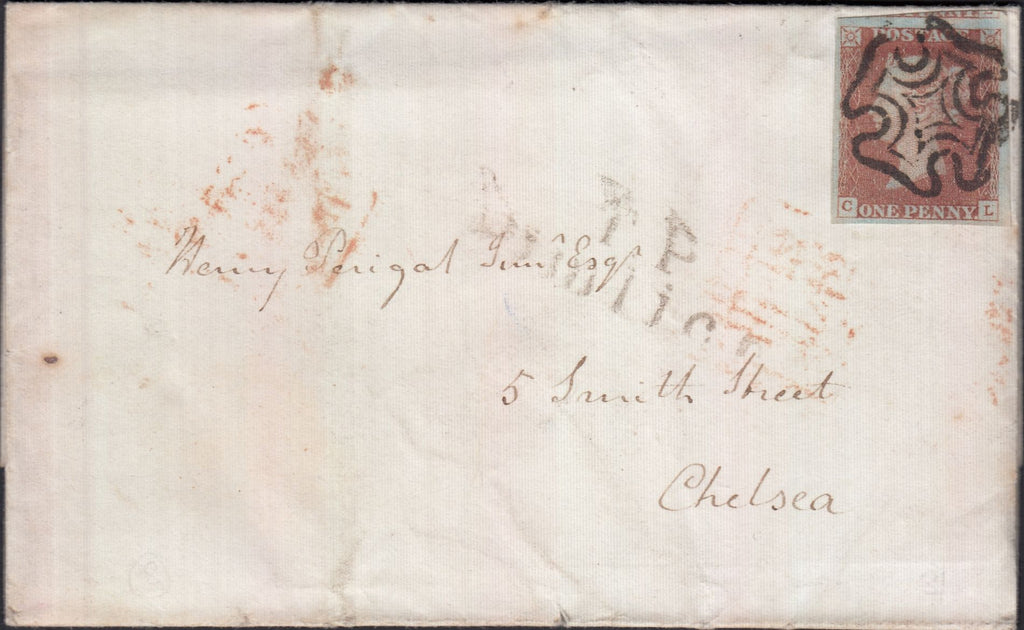 POSTAGE
C ONE PENNY L
T P
Henry Perigal Junr Esqr
5 Smith Street
Chelsea